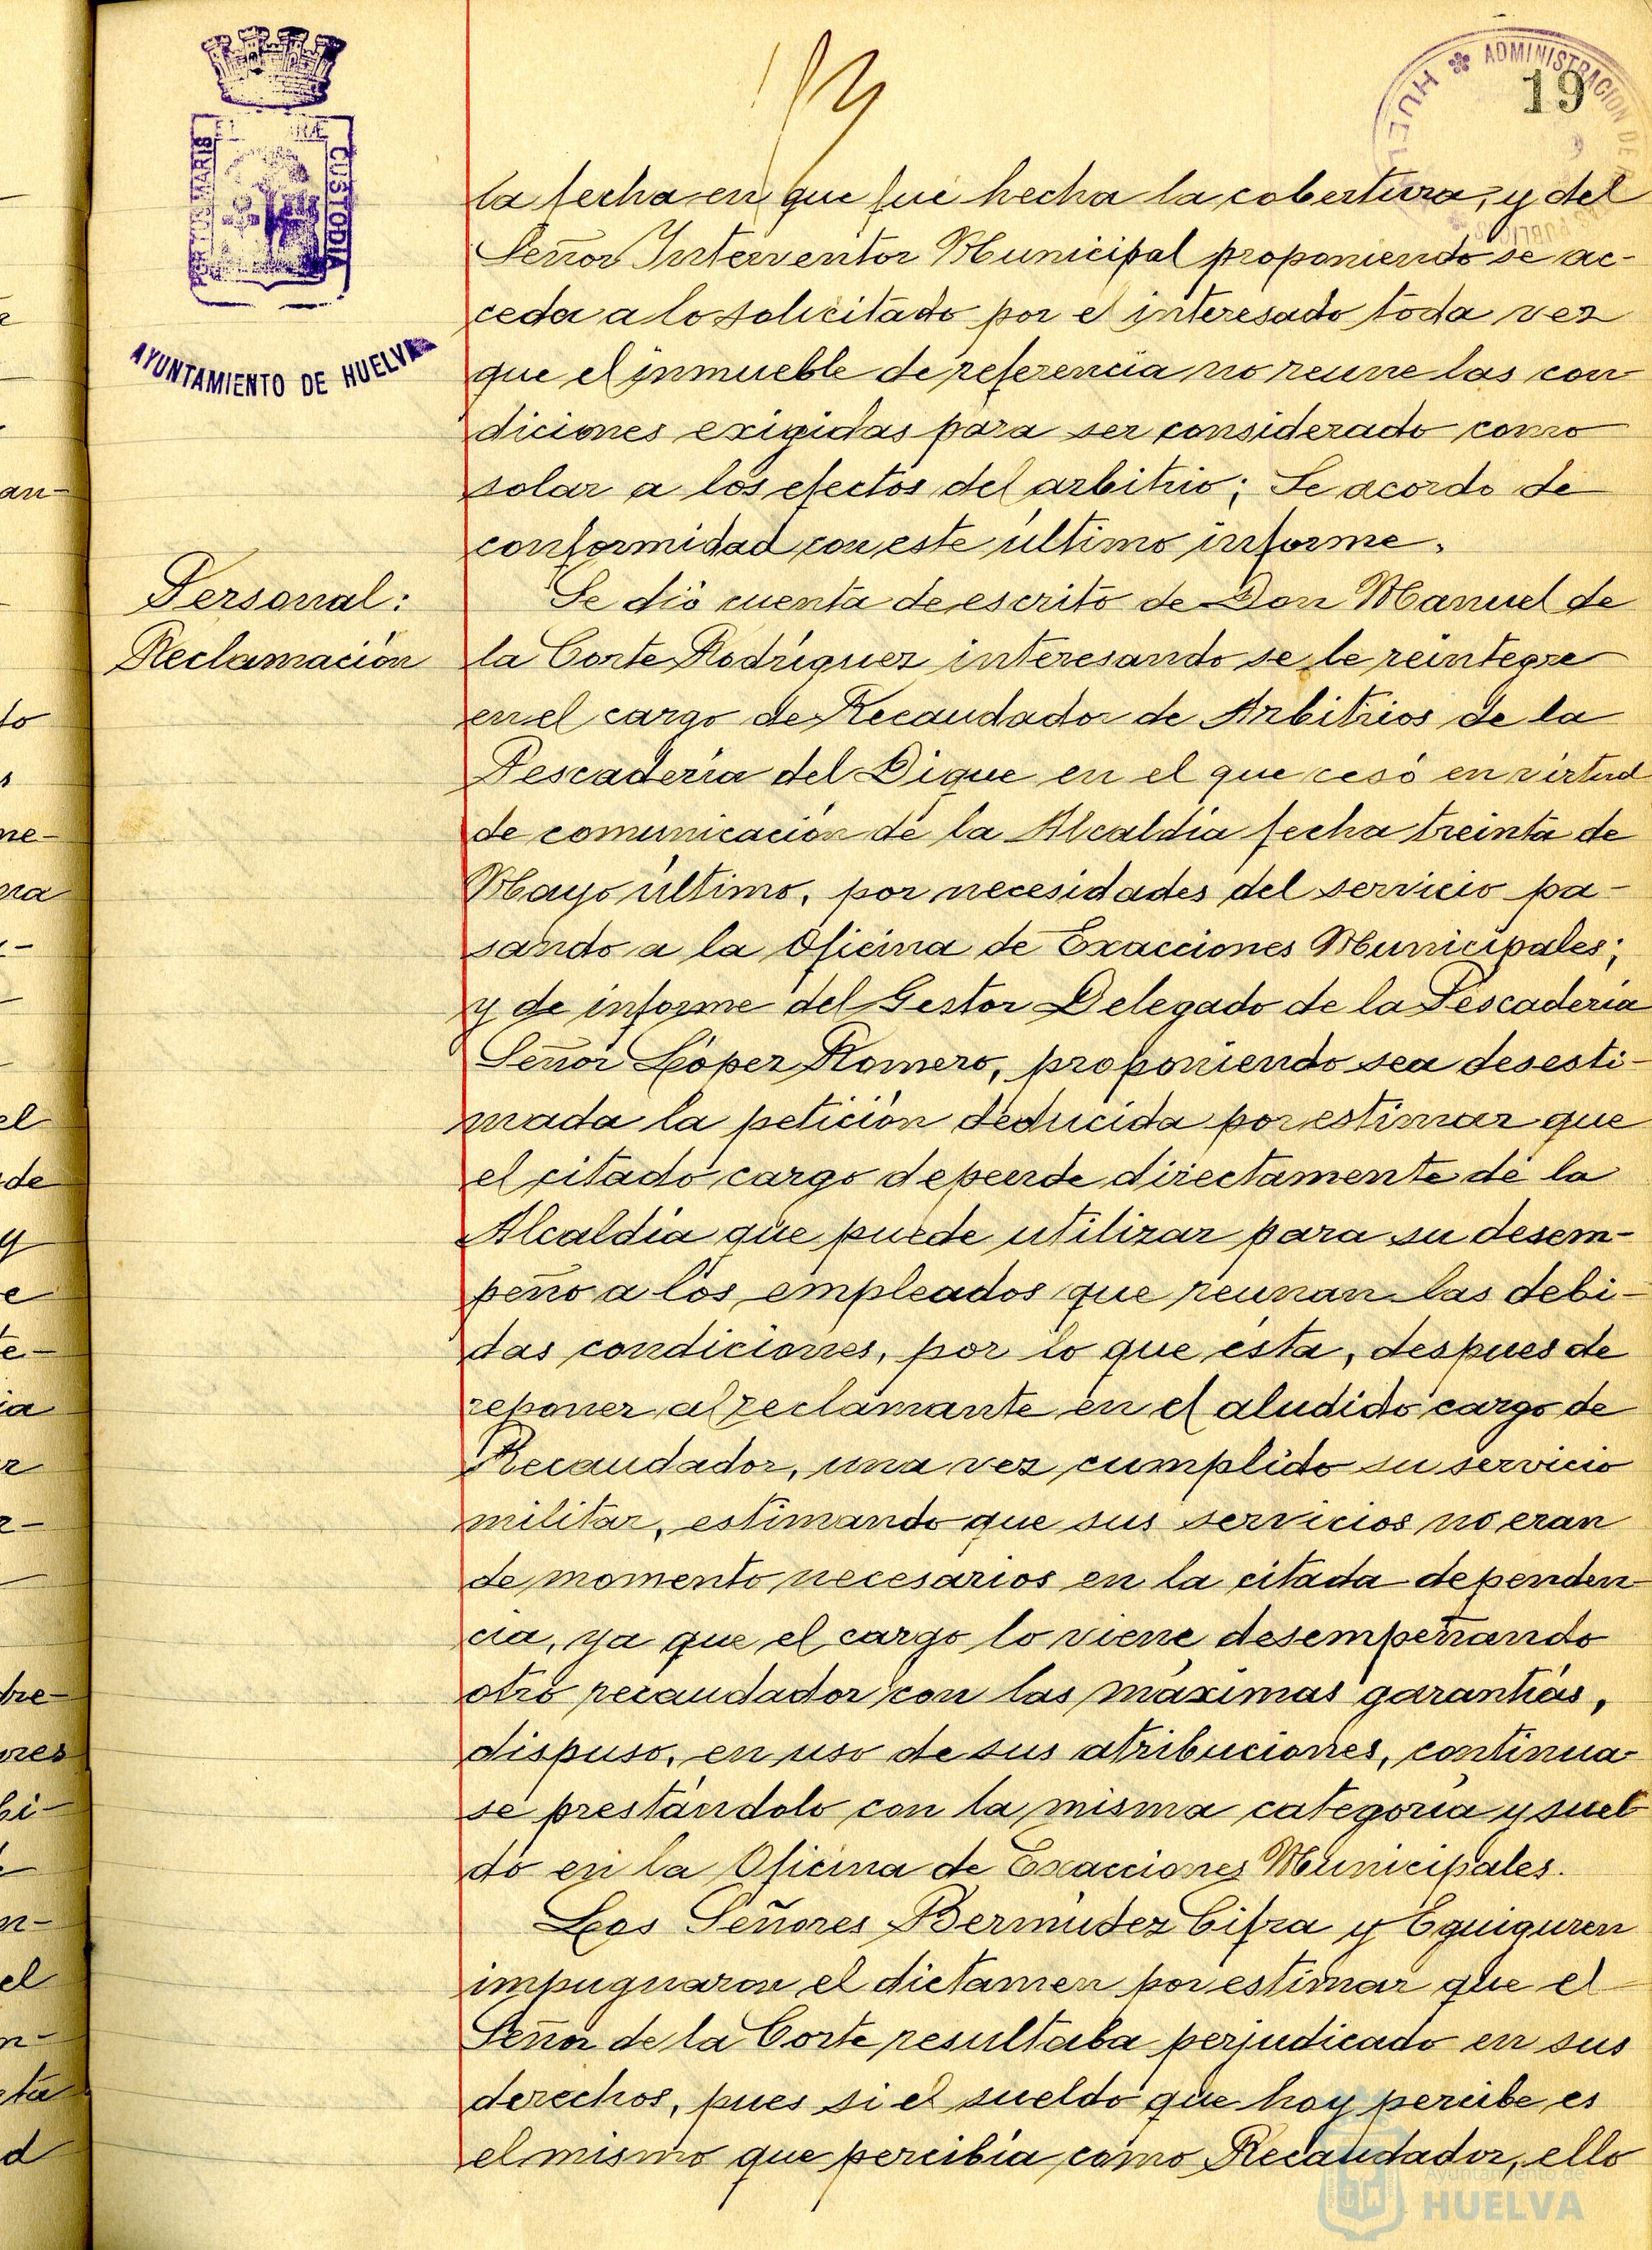 19
ADMINISTRACION DE
HUEL
PORTUS MARIS
CUSTODIA
AYUNTAMIENTO DE HUELVA
la fecha en que fué hecha la cobertura, y del
Señor Interventor Municipal proponiendo se ac-
ceda a lo solicitado por el interesado toda vez
que el inmueble de referencia no reune las con
diciones exigidas para ser considerado como
solar a los efectos del arbitrio; Se acordo de
conformidad con este último informe.
Personal:
Reclamación
Se dió cuenta de escrito de Don Manuel de
la Corte Rodríguez interesando se le reintegre
en el cargo de Recaudador de Arbitrios de la
Pescadería del Dique en el que cesó en virtud
de comunicación de la Alcaldía fecha treinta de
Mayo último, por necesidades del servicio pa-
sando a la Oficina de Exacciones Municipales;
y de informe del Gestor Delegado de la Pescadería
Señor López Romero, proponiendo sea desesti-
mada la petición deducida por estimar que
el citado cargo depende directamente de la
Alcaldía que puede utilizar para su desem-
peño a los empleados que reunan las debi-
das condiciones, por lo que ésta, despues de
reponer al reclamante en el aludido cargo de
Recaudador, una vez cumplido su servicio
militar, estimando que sus servicios no eran
de momento necesarios en la citada dependen-
cia, ya que el cargo lo viene desempeñando
otro recaudador con las máximas garantías,
dispuso, en uso de sus atribuciones, continua-
se prestándolo con la misma categoría y suel-
do en la Oficina de Exacciones Municipales.
Los Señores Bermúdez Cifra y Eguiguren
impugnaron el dictamen por estimar que el
Señor de la Corte resultaba perjudicado en sus
derechos, pues si el sueldo que hoy percibe es
el mismo que percibía como Recaudador, ello
Ayuntamiento de
HUELVA